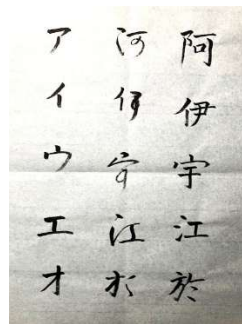 阿伊宇江於
河伊宇江於
アイウエオ